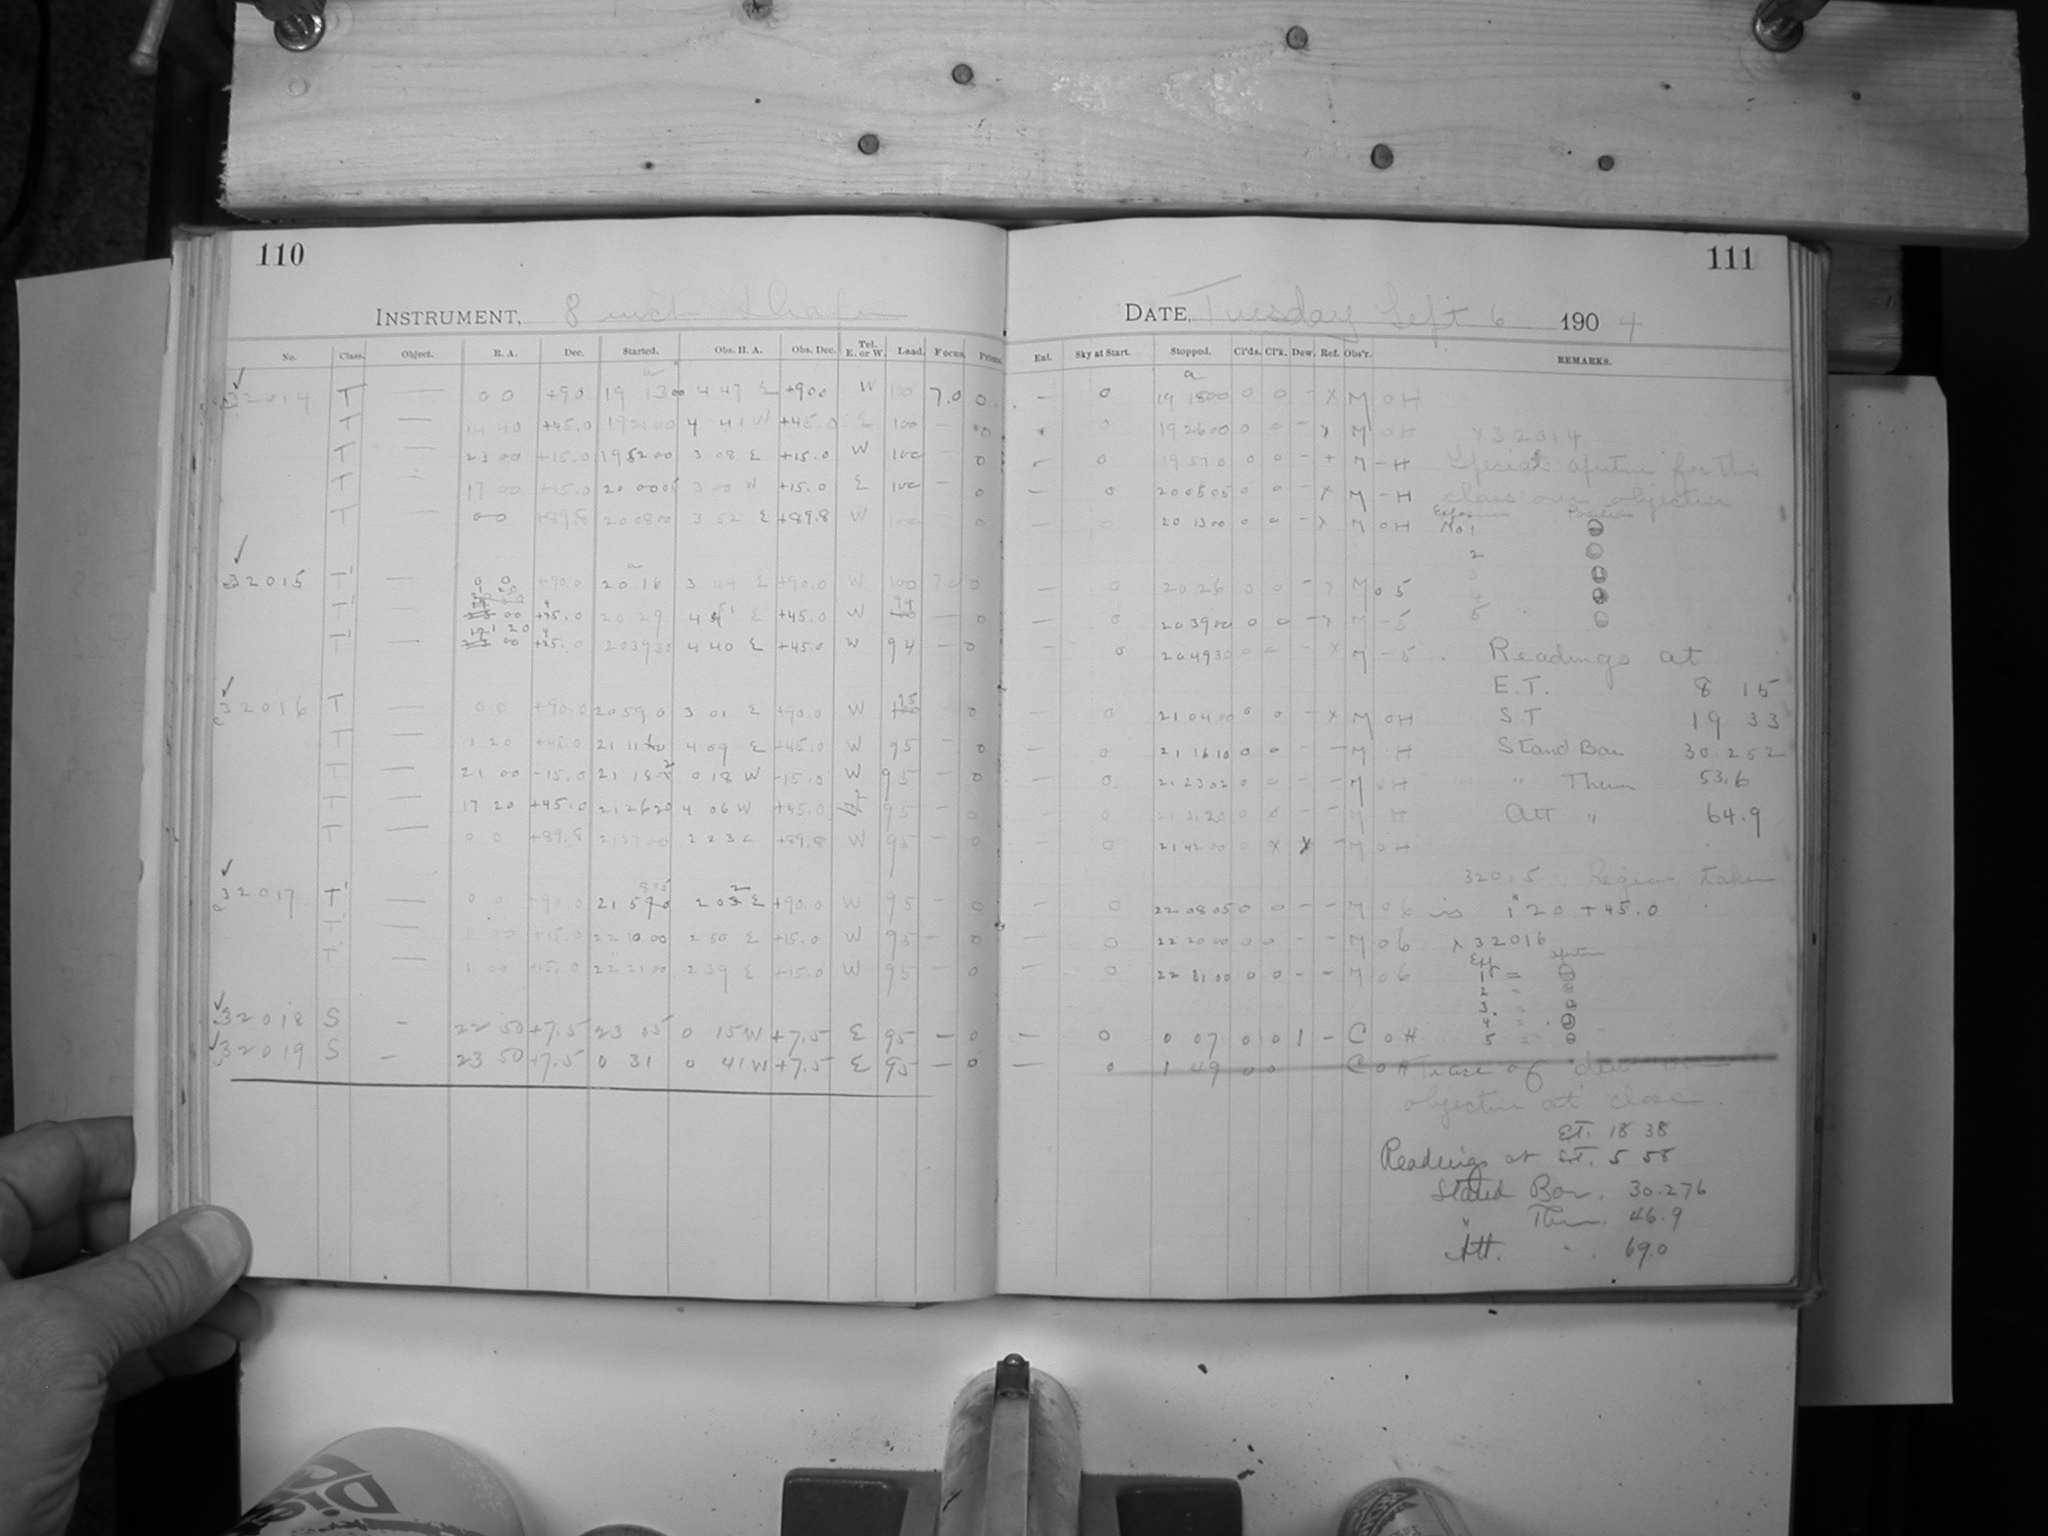 110
INSTRUMENT, 8 inch
No. Class. Object. R. A. Dec. Started. Obs. H. A. Obs. Dec. Tel. E. or W. Load. Focus. Prisms.
32014 T — 0 0 +90 19 13 00 4 47 E +90.0 W 100 7.0 0
T — +45.0 19 21 00 4 41 W +45.0 E 100 — 0
T — 23 00 +15.0 19 52 00 3 08 E +15.0 W 100 — 0
T — 17 00 +15.0 20 00 05 3 00 W +15.0 E 100 — 0
T — 0 0 +89.8 20 08 00 3 52 E +89.8 W 100 — 0
32015 T' — 0 0 +90.0 20 16 3 44 E +90.0 W 100 7.0 0
T' — +45.0 20 29 4 51 E +45.0 W 94 — 0
T' — 1 20 +45.0 20 39 30 4 40 E +45.0 W 94 — 0
32016 T — 0 0 +90.0 20 59 0 3 01 E +90.0 W 95 — 0
T — 1 20 +45.0 21 11 10 4 09 E +45.0 W 95 — 0
T — 21 00 -15.0 21 18 02 0 18 W -15.0 W 95 — 0
T — 17 20 +45.0 21 26 20 4 06 W +45.0 95 — 0
T — 0 0 +89.8 21 37 00 2 23 +89.8 W 95 — 0
32017 T' — 0 0 +90.0 21 58 05 2 02 E +90.0 W 95 — 0
T' — 1 00 +15.0 22 10 00 2 50 E +15.0 W 95 — 0
T' — 1 00 +15.0 22 21 00 2 39 E +15.0 W 95 — 0
32018 S — 22 50 +7.5 23 05 0 15 W +7.5 E 95 — 0
32019 S — 23 50 +7.5 0 31 0 41 W +7.5 E 95 — 0
111
DATE, Tuesday Sept 6 1904
Eal. Sky at Start. Stopped. Cl'ds. Cl'k. Dew. Ref. Obs'r. REMARKS.
— 0 19 18 00 0 0 - x M 0 H
0 19 26 00 0 0 - x M 0 H x 32014
— 0 19 57 0 0 0 - x M - H Special aperture for this
— 0 20 05 05 0 0 - x M - H class over objective
Exposure Position
— 0 20 13 00 0 0 - x M 0 H No 1
2
3
4
5
0 20 26 0 0 - x M 0 5
— 0 20 39 00 0 0 - x M - 5
— 0 20 49 30 0 0 - x M - 5 Readings at
E.T. 8 15
— 0 21 04 00 0 0 - x M 0 H S.T 19 33
— 0 21 16 10 0 0 - - M - H Stand Bar 30.252
— 0 21 23 02 0 0 - - M 0 H " Therm 53.6
0 0 0 - - M - H Att " 64.9
0 21 42 00 0 x x - M 0 H
32015 Region taken
0 22 08 05 0 0 - - M 0 6 is 1 20 +45.0
0 22 20 00 0 0 - - M 0 6 x 32016
Exp aperture
0 22 31 00 0 0 - - M 0 6 1 =
2 =
3 =
4 =
5 =
— 0 0 07 0 0 1 - C 0 H
— 0 1 49 0 0 C 0 H Trace of dew on
objective at close.
E.T. 18 38
Readings at S.T. 5 58
Stand Bar. 30.276
" Ther. 46.9
Att. " 69.0